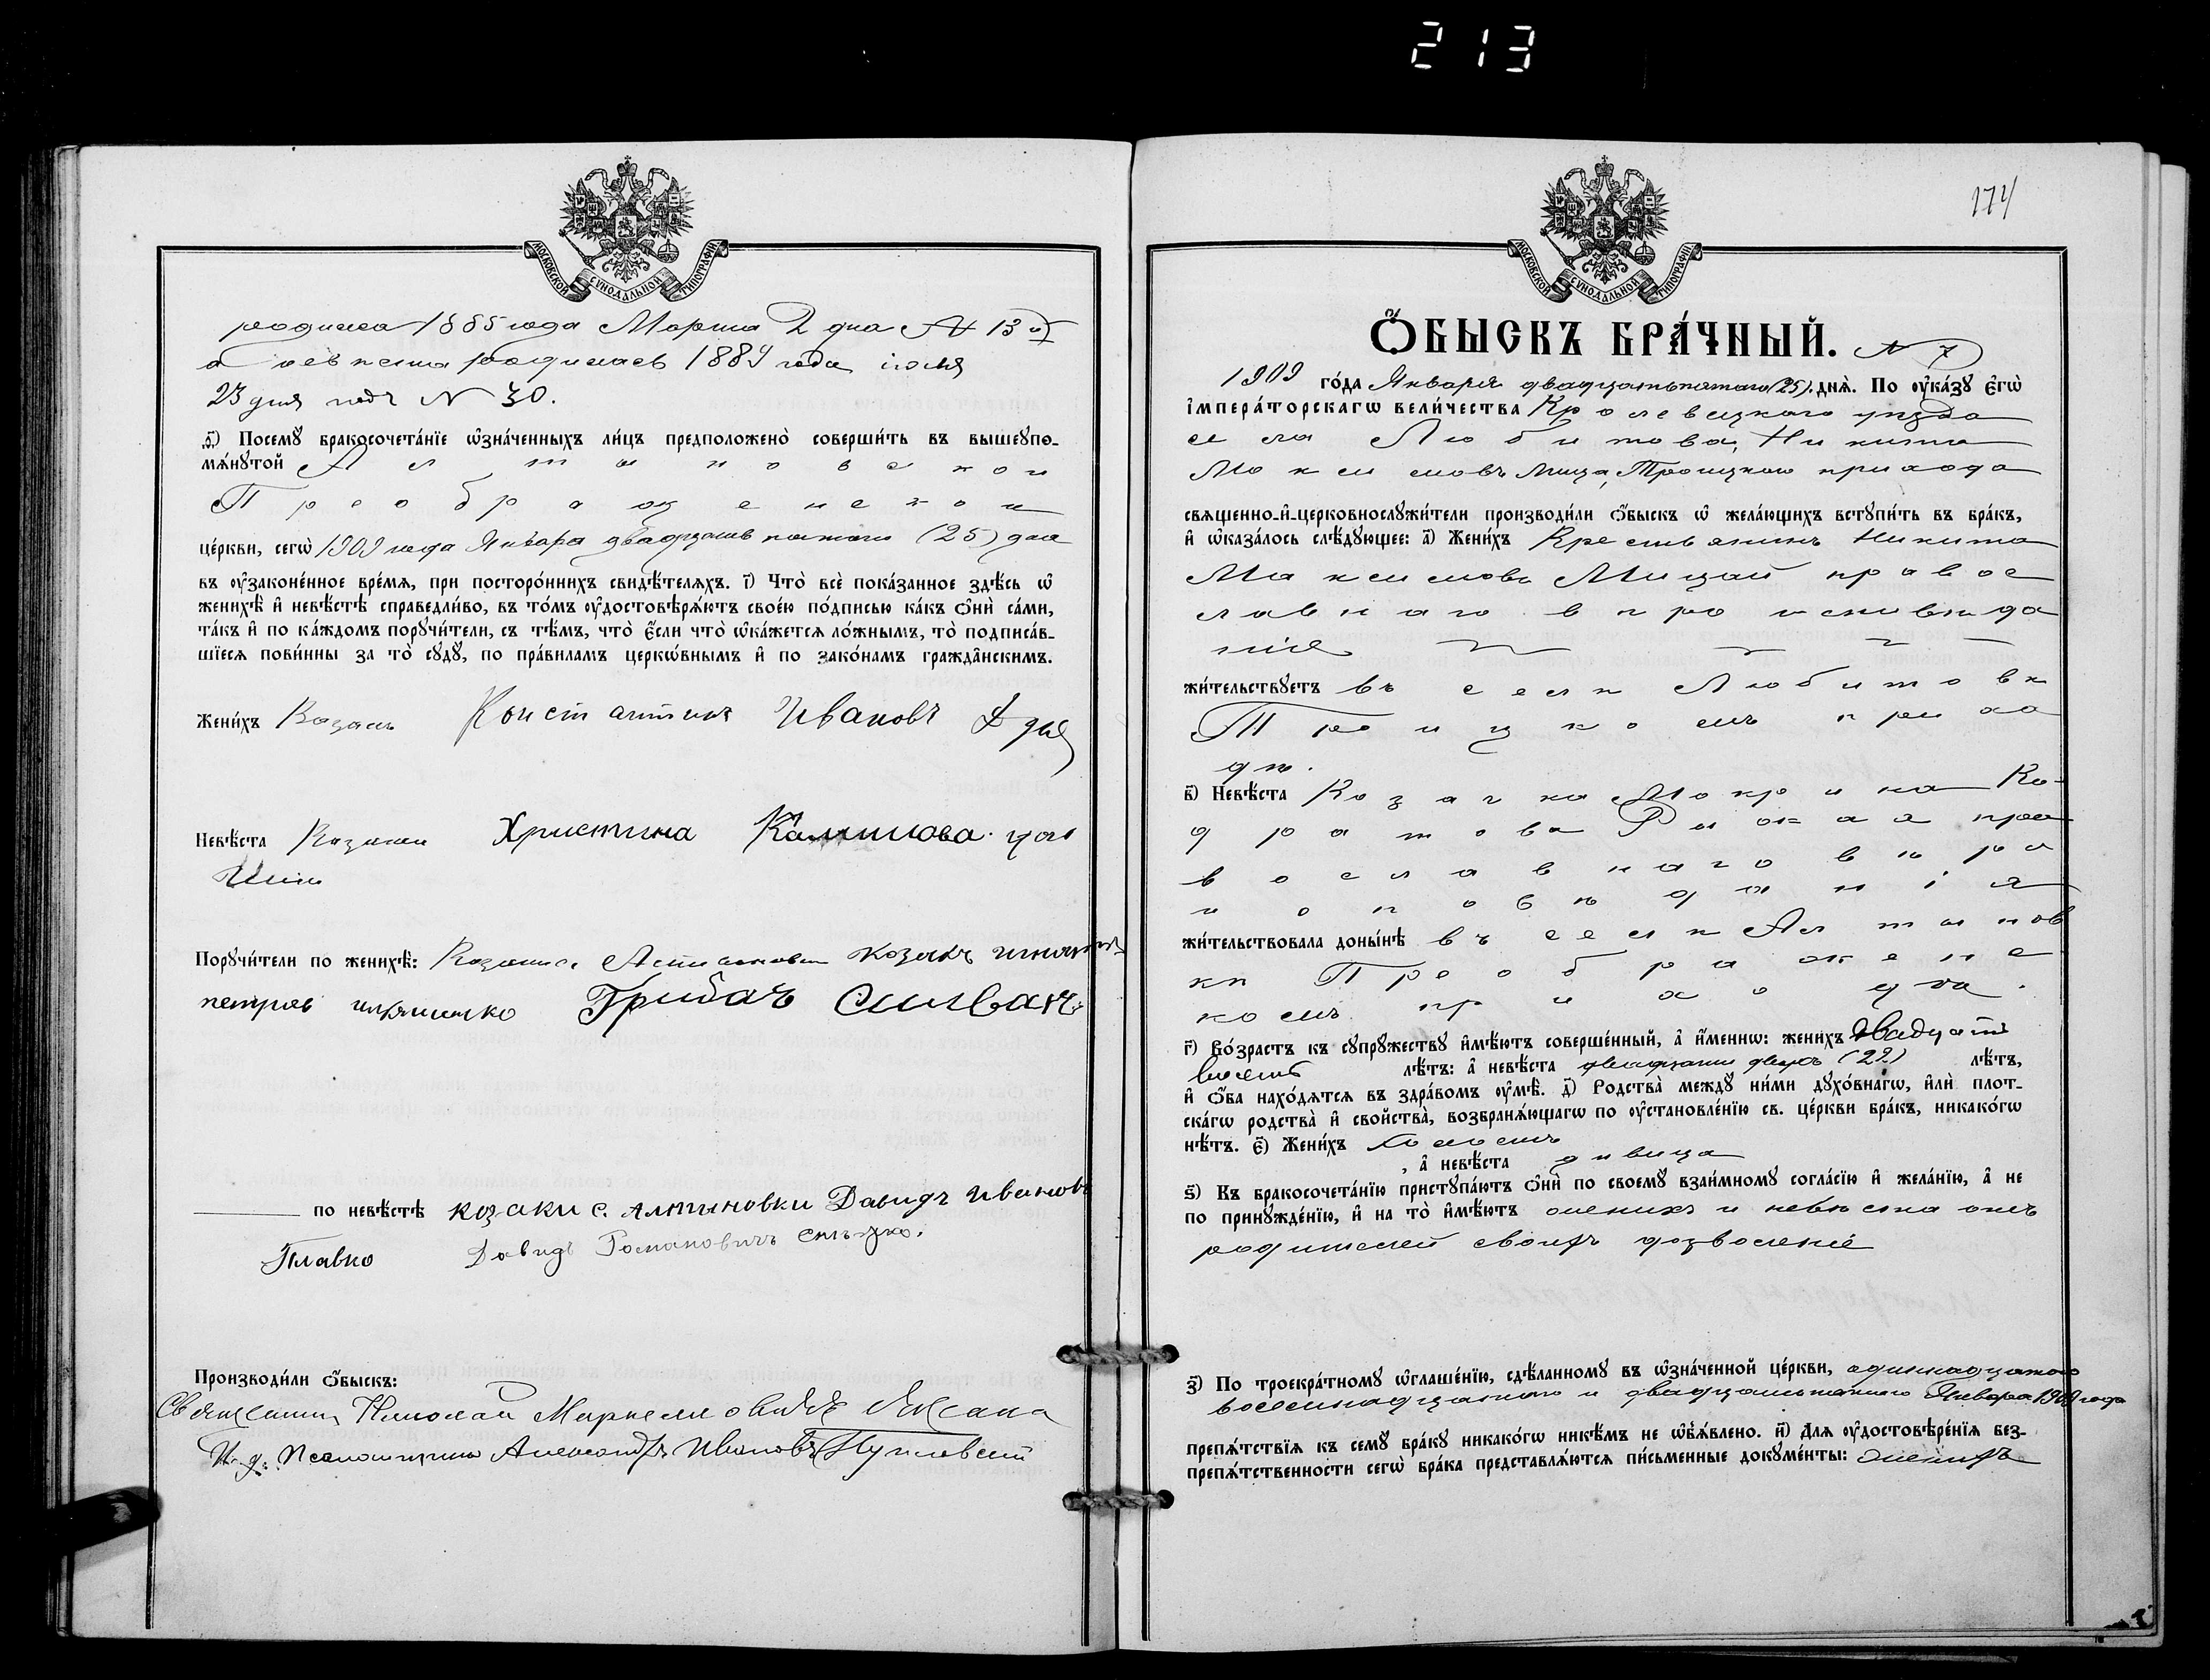 213
МОСКОВСКОЙ СУНОДАЛЬНОЙ ТИПОГРАФІИ
1885 года Марта 2 дня № 13
а невѣста родилась 1889 года іюля
23 дня подъ № 30.
Посемꙋ бракосочета́нїе ѡ҆зна́ченныхъ ли́цъ предположено̀ соверши́ть въ вышеꙋпо-
мѧ́нꙋтой Алтыновской
Преображенской
це́ркви, сегѡ̀ 1909 года Января двадцать пятаго (25) дня
въ ѹ҆законе́нное вре́мѧ, при посторо́ннихъ свидѣ́телѧхъ. і҃) Что̀ всѐ пока́занное здѣ́сь ѡ҆
женихѣ̀ и҆ невѣ́стѣ справедли́во, въ то́мъ ѹ҆достовѣрѧ́ютъ свое́ю по́дписью ка́къ ѻ҆нѝ са́ми,
та́къ и҆ по ка́ждомъ порꙋчи́тели, съ тѣ́мъ, что̀ є҆́сли что̀ ѡ҆ка́жетсѧ ло́жнымъ, то̀ подписа́в-
шїесѧ пови́нны за то̀ сꙋдꙋ̀, по пра́виламъ церкѡ́внымъ и҆ по зако́намъ гражда̂нскимъ.
Жени́хъ Козакъ Константинъ Ивановъ
Невѣ́ста Христина
Порꙋчи́тели по женихѣ̀: козакъ
петровъ Грибачъ
по невѣ́стѣ козаки с. Алтыновки Давидъ Ивановъ
Главко Давидъ Романовичъ
Производи́ли ѻ҆́быскъ:
Священникъ Николай
И. д. Псаломщика Александръ Ивановъ
174
МОСКОВСКОЙ СУНОДАЛЬНОЙ ТИПОГРАФІИ
Ѻ҆́БЫСКЪ БРА́ЧНЫЙ. № 7
1909 го́да Января двадцатьпятаго (25) днѧ̀. По ѹ҆ка́зꙋ є҆гѡ̀
і҆мпера́торскагѡ вели́чества Кролевецкого уѣзда
села Любитова, Никита
Максимовъ Мица, Троицкого прихода
свѧщенно-и҆-церковнослꙋжи́тели производи́ли ѻ҆́быскъ ѡ҆ жела́ющихъ встꙋпи́ть въ бра́къ,
и҆ ѡ҆каза́лось слѣ́дꙋющее: а҃) Жени́хъ Крестьянинъ Никита
Максимовъ Мицай правос
лавнаго вѣроисповѣда
ніе
жи́тельствꙋетъ въ селѣ Любитовѣ
Троицкомъ прихо
дѣ.
в҃) Невѣ́ста Козачка Мокрина Ко-
дратова Рыжая пра
вославнаго вѣро
исповѣданія
жи́тельствовала доны́нѣ въ селѣ Алтынов
кѣ Преображенс
комъ прихода.
г҃) Во́зрастъ къ сꙋпрꙋжествꙋ̀ и҆мѣ́ютъ совершéнный, а҆ и҆́менно: жени́хъ двадцать
восемь лѣ́тъ: а҆ невѣ́ста двадцати двухъ (22) лѣ́тъ,
и҆ ѻ҆́ба нахо́дѧтсѧ въ здра́вомъ ѹ҆мѣ̀. д҃) Родства̀ междꙋ̀ ни́ми дꙋхо́внагѡ, и҆лѝ плот-
ска́гѡ родства̀ и҆ свойства̀, возбранѧ́ющагѡ по ѹ҆становле́нїю св. це́ркви бра́къ, никако́гѡ
нѣ́тъ. є҃) Жени́хъ холостъ
, а҆ невѣ́ста дѣвица
ѕ҃) Къ бракосочета́нїю пристꙋпа́ютъ ѻ҆нѝ по своемꙋ̀ взаи́мномꙋ согла́сїю и҆ жела́нїю, а҆ не
по принꙋжде́нїю, и҆ на то̀ и҆мѣ́ютъ женихъ и невѣста отъ
родителей своихъ дозволеніе
з҃) По троекра́тномꙋ ѡ҆глаше́нїю, сдѣ́ланномꙋ въ ѡ҆зна́ченной це́ркви, одиннадцатого
восемнадцатого и двадцатьпятого Января 1909 года
препѧ́тствїѧ къ семꙋ̀ бра́кꙋ никако́гѡ никѣ́мъ не ѡ҆б̾ѧ́влено. и҃) Длѧ ѹ҆достовѣре́нїѧ без-
препѧ́тственности сегѡ̀ бра́ка представлѧ́ютсѧ пи́сьменные докꙋме́нты: женихъ